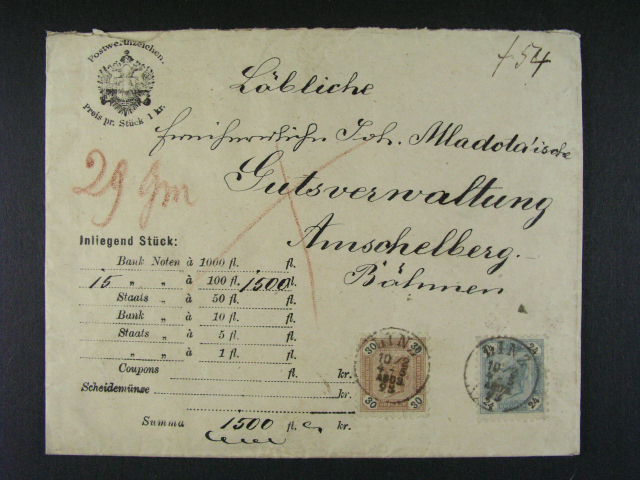 Postwertzeichen.
Preis pr. Stück 1 kr.
f 54
Löbliche
Freiherrliche Joh. Mladota'ische
Gutsverwaltung
Amschelberg.
Böhmen
29 gm
Inliegend Stück:
Bank Noten à 1000 fl. fl.
15 „ „ à 100 fl. 1500 fl.
Staats „ à 50 fl. fl.
Bank „ à 10 fl. fl.
Staats „ à 5 fl. fl.
„ „ à 1 fl. fl.
Coupons fl. kr.
Scheidemünze kr.
Summa 1500 fl. kr.
30 30
LINZ
10/3
30 30
24
LINZ
10/3
24 24